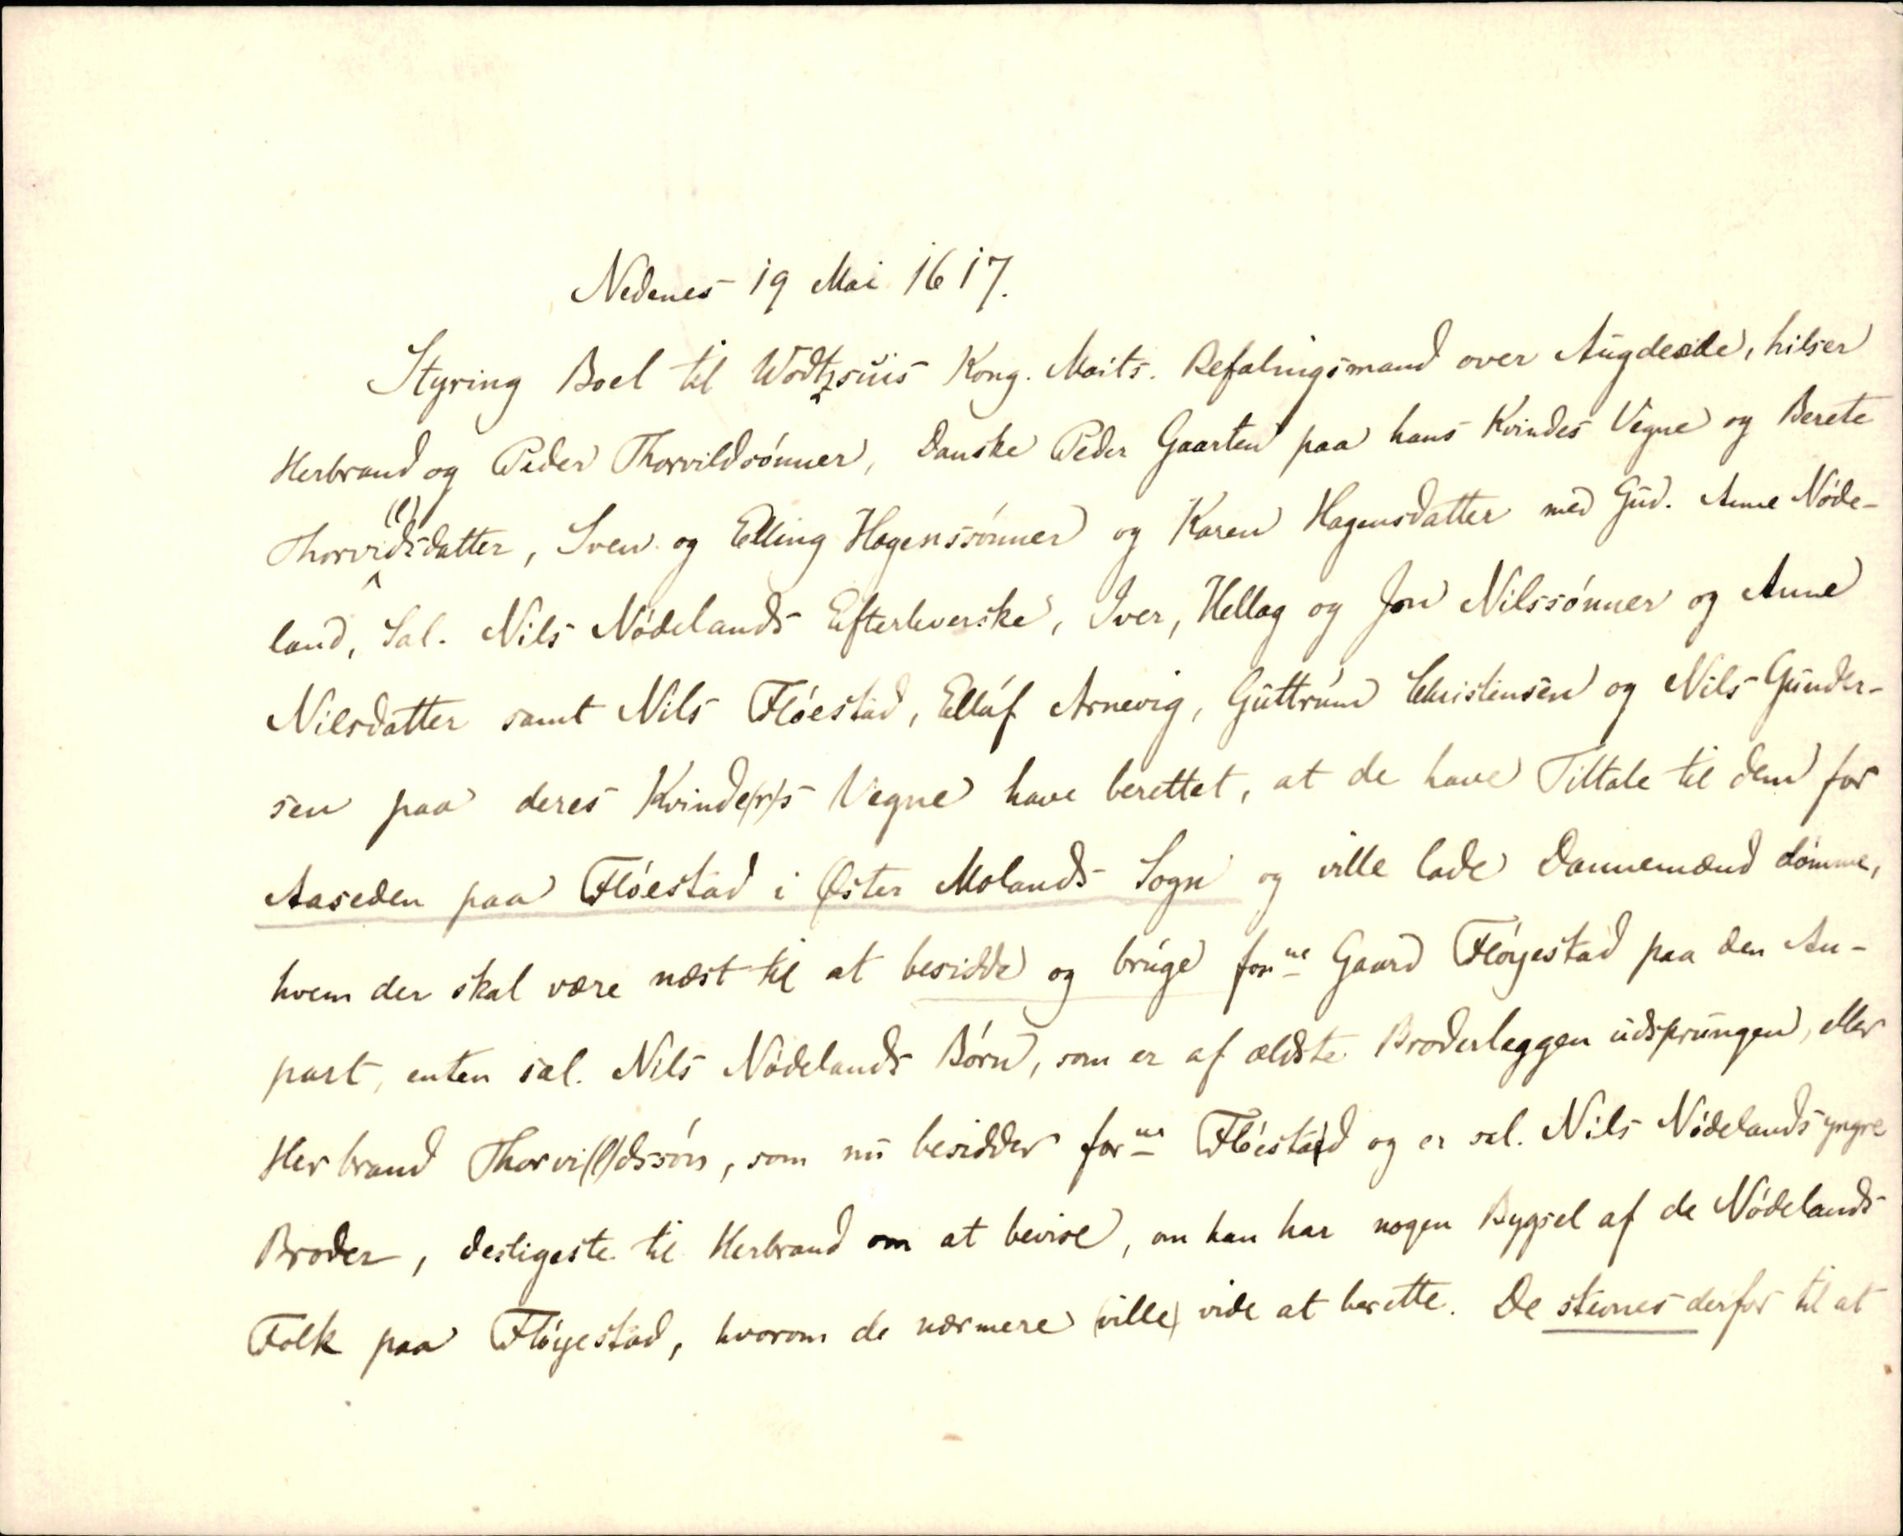 Nedenes 19 Mai 1617.
Styring Boel til Wodtzsuis Kong. Maits. Befalingsmand over Augdeside, hilser
Herbrand og Peder Thorvildsónner, Danske Peder Gaarten paa hans Kvindes Vegne og Berete
Thorvi(l)dsdatter, Sven og Elling Hagenssónner og Karen Hagensdatter med Gud. Anne Nóde-
land, Sal. Nils Nódelands Efterleverske, Iver, Hellag og Jon Nilssónner og Anne
Nilsdatter samt Nils Flóestad, Elláf Arnevig, Guttrúm Christensen og Nils Gunder-
sen paa deres Kvinde(r)s Vegne have berettet, at de have Tiltale til dem for
Aaseden paa Flóestad i Øster Molands Sogn og ville lade Dannemænd dómme,
hvem der skal være næst til at besidde og brúge forne Gaard Flóyestad paa den An-
part, enten sal. Nils Nódelands Børn, som er af ældste Broderleggen udsprungen, eller
Herbrand Thorvi(l)dssón, som nu besidder forne Flóestad og er sal. Nils Nódelands yngre
Broder, desligeste til Herbrand om at bevise, om han har nogen Bygsel af de Nódelands
Folk paa Flóyestad, hvorom de nærmere (ville) vide at berette. De stevnes derfor til at